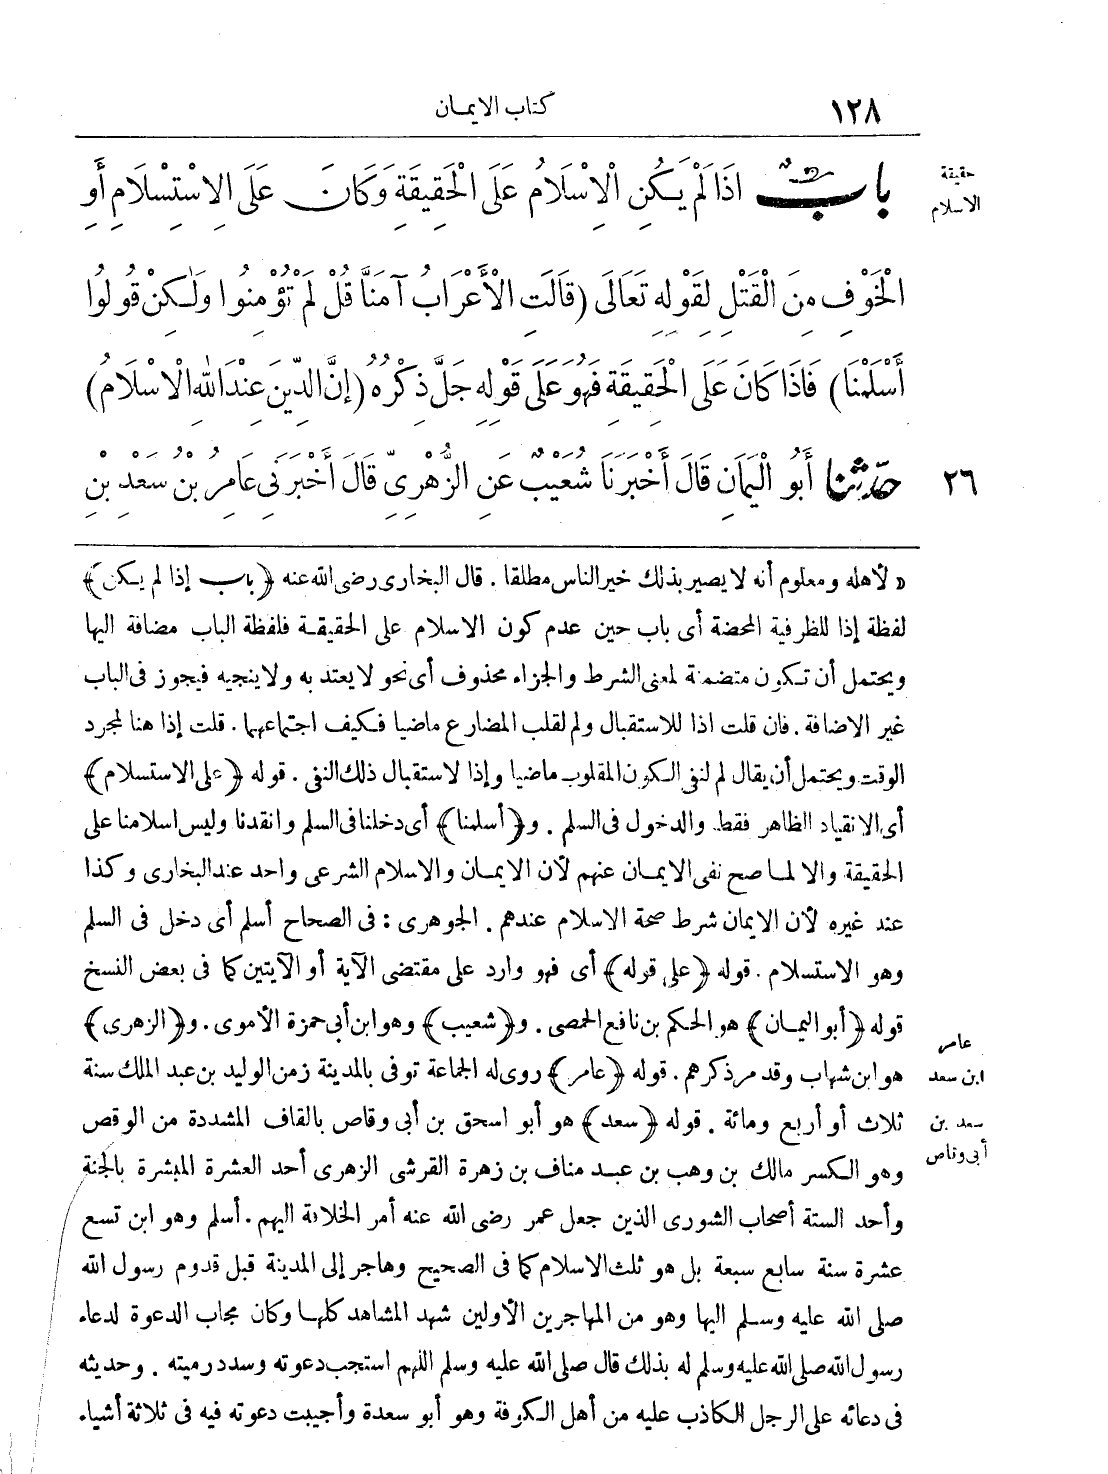 ١٢٨ كتاب الايمان
حقيقة
الاسلام
بابٌ اذَا لَمْ يَكُنِ الْاِسْلَامُ عَلَى الْحَقِيقَةِ وَكَانَ عَلَى الِاسْتِسْلَامِ أَوِ
الْخَوْفِ مِنَ الْقَتْلِ لِقَوْلِهِ تَعَالَى (قَالَتِ الْأَعْرَابُ آمَنَّا قُلْ لَمْ تُؤْمِنُوا وَلٰكِنْ قُولُوا
أَسْلَمْنَا) فَاذَا كَانَ عَلَى الْحَقِيقَةِ فَهُوَ عَلَى قَوْلِهِ جَلَّ ذِكْرُهُ (إنَّ الدِّينَ عِنْدَ اللهِ الْاِسْلَامُ)
٢٦ حدّثنا أَبُو الْيَمَانِ قَالَ أَخْبَرَنَا شُعَيْبٌ عَنِ الزُّهْرِيِّ قَالَ أَخْبَرَنِي عَامِرُ بْنُ سَعْدِ بْنِ
« لأهله ومعلوم أنه لا يصير بذلك خير الناس مطلقا . قال البخارى رضى الله عنه ﴿باب إذا لم يكن﴾
لفظة إذا للظرفية المحضة أى باب حين عدم كون الاسلام على الحقيقة فلفظة الباب مضافة اليها
ويحتمل أن تكون متضمنة لمعنى الشرط والجزاء محذوف أى نحو لا يعتد به ولا ينجيه فيجوز فى الباب
غير الاضافة . فان قلت اذا للاستقبال ولم لقلب المضارع ماضيا فكيف اجتماعهما . قلت إذا هنا لمجرد
الوقت ويحتمل أن يقال لم لنفى الكون المقلوب ماضيا وإذا لاستقبال ذلك النفى . قوله ﴿على الاستسلام﴾
أى الانقياد الظاهر فقط والدخول فى السلم . و﴿أسلمنا﴾ أى دخلنا فى السلم وانقدنا وليس اسلامنا على
الحقيقة والا لما صح نفى الايمان عنهم لأن الايمان والاسلام الشرعى واحد عند البخارى وكذا
عند غيره لأن الايمان شرط صحة الاسلام عندهم . الجوهرى : فى الصحاح أسلم أى دخل فى السلم
وهو الاستسلام . قوله ﴿على قوله﴾ أى فهو وارد على مقتضى الآية أو الآيتين كما فى بعض النسخ
قوله ﴿أبو اليمان﴾ هو الحكم بن نافع الحمصى . و﴿شعيب﴾ وهو ابن أبى حمزة الأموى . و﴿الزهرى﴾
عامر
هو ابن شهاب وقد مر ذكرهم . قوله ﴿عامر﴾ روى له الجماعة توفى بالمدينة زمن الوليد بن عبد الملك سنة
ابن سعد
ثلاث أو أربع ومائة . قوله ﴿سعد﴾ هو أبو اسحق بن أبى وقاص بالقاف المشددة من الوقص
سعد بن
أبى وقاص
وهو الكسر مالك بن وهب بن عبد مناف بن زهرة القرشى الزهرى أحد العشرة المبشرة بالجنة
وأحد الستة أصحاب الشورى الذين جعل عمر رضى الله عنه أمر الخلافة اليهم . أسلم وهو ابن تسع
عشرة سنة سابع سبعة بل هو ثلث الاسلام كما فى الصحيح وهاجر إلى المدينة قبل قدوم رسول الله
صلى الله عليه وسلم اليها وهو من المهاجرين الأولين شهد المشاهد كلها وكان مجاب الدعوة لدعاء
رسول الله صلى الله عليه وسلم له بذلك قال صلى الله عليه وسلم اللهم استجب دعوته وسدد رميته . وحديثه
فى دعائه على الرجل الكاذب عليه من أهل الكوفة وهو أبو سعدة وأجيبت دعوته فيه فى ثلاثة أشياء